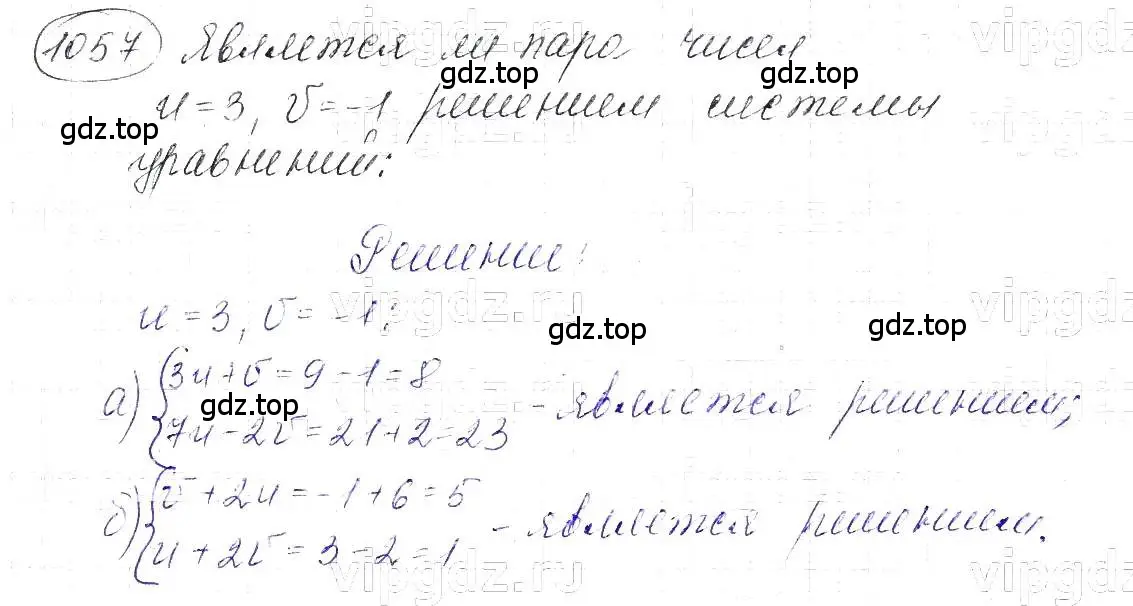 1057 Является ли пара чисел
u = 3, v = -1 решением системы
уравнений:
Решение:
u = 3, v = -1;
а) { 3u + v = 9 - 1 = 8
7u - 2v = 21 + 2 = 23 - является решением;
б) { v + 2u = -1 + 6 = 5
u + 2v = 3 - 2 = 1 - является решением.
gdz.top
gdz.top
gdz.top
gdz.top
gdz.top
gdz.top
vipgdz.ru
vipgdz.ru
vipgdz.ru